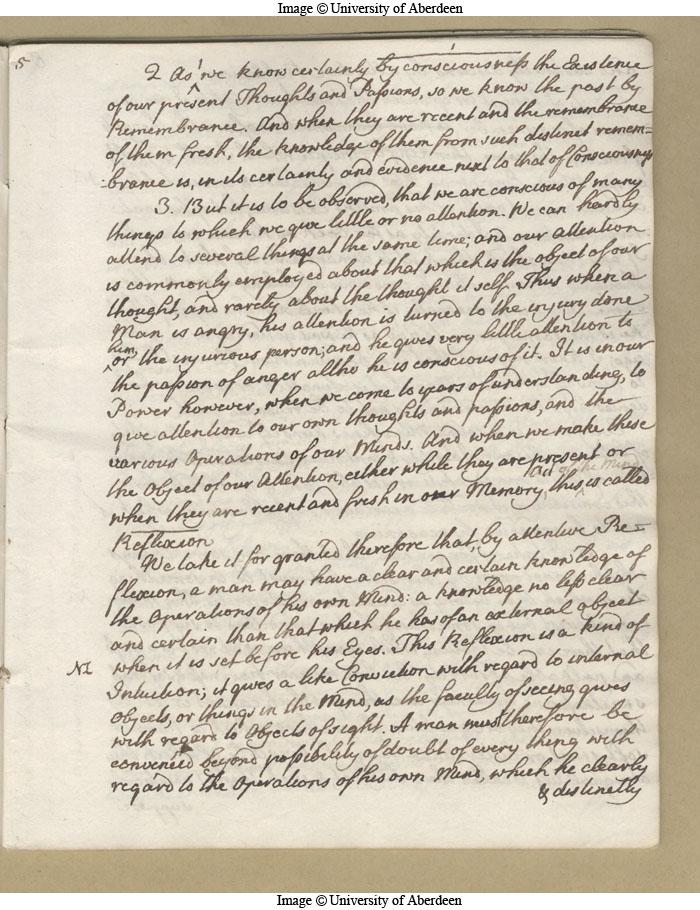 Image © University of Aberdeen
5
2 As we know certainly by consciousness the Existence
of our present Thoughts and Passions, so we know the past by
Remembrance. And when they are recent and the remembrance
of them fresh, the knowledge of them from such distinct remem=
:brance is, in its certainty and evidence next to that of Consciousness
3. But it is to be observed, that we are conscious of many
things to which we give little or no attention. We can hardly
attend to several things at the same time; and our attention
is commonly employed about that which is the object of our
thought, and rarely about the thought it self. Thus when a
Man is angry, his attention is turned to the injury done
him,
or the injurious person; and he gives very little attention to
the passion of anger altho he is conscious of it. It is in our
Power however, when we come to years of understanding, to
give attention to our own thoughts and passions, and the
various Operations of our Minds. And when we make these
the Object of our Attention, either while they are present or
Act of the Mind
when they are recent and fresh in our Memory, this is called
Reflexion
We take it for granted therefore that, by attentive Re=
flexion, a man may have a clear and certain knowledge of
the Operations of his own Mind: a knowledge no less clear
and certain than that which he has of an external object
when it is set before his Eyes. This Reflexion is a kind of
N1
Intuition; it gives a like Conviction with regard to internal
objects, or things in the Mind, as the faculty of seeing gives
with regard to Objects of sight. A man must therefore be
convenced beyond possibility of doubt of every thing with
regard to the Operations of his own Mind, which he clearly
& distinctly
Image © University of Aberdeen